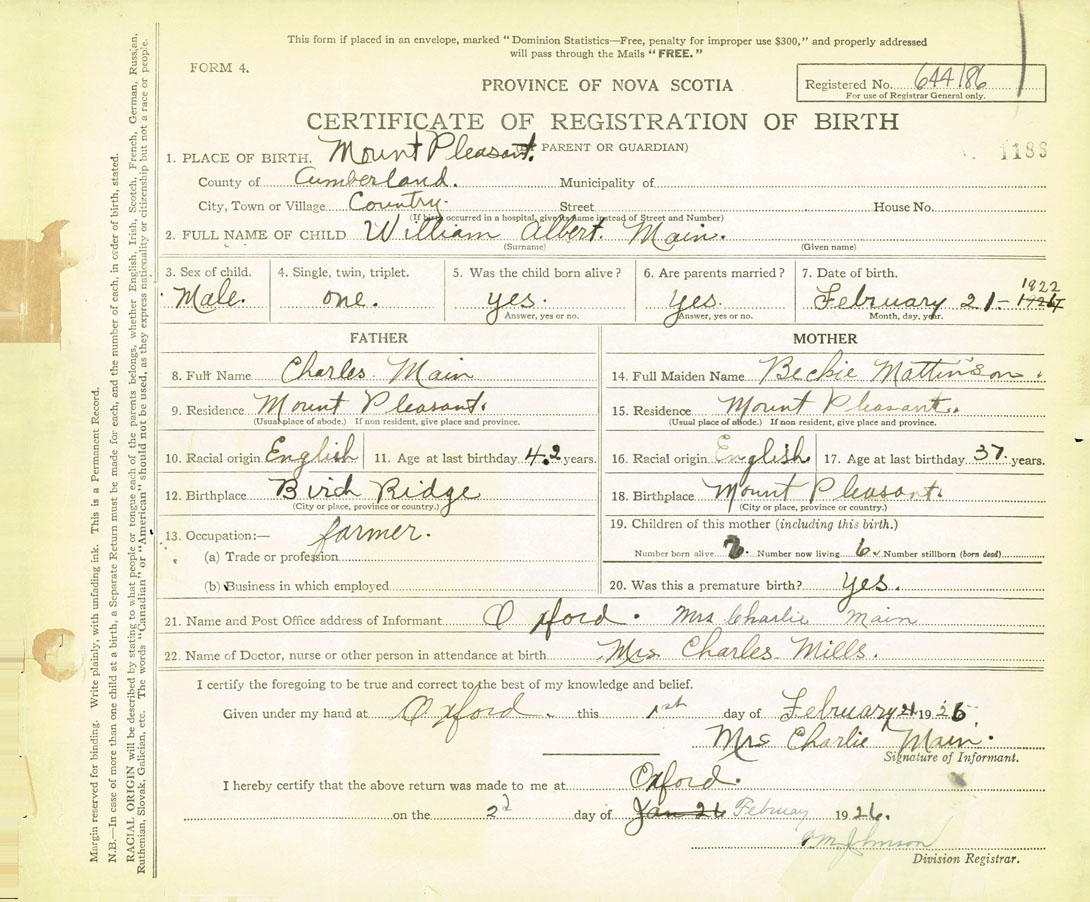 This form if placed in an envelope, marked "Dominion Statistics—Free, penalty for improper use $300," and properly addressed
will pass through the Mails "FREE."
FORM 4.
PROVINCE OF NOVA SCOTIA
Registered No. 644186
For use of Registrar General only.
CERTIFICATE OF REGISTRATION OF BIRTH
PARENT OR GUARDIAN)
1. PLACE OF BIRTH. Mount Pleasant.
1188
County of Cumberland. Municipality of
City, Town or Village Country. Street House No.
(If birth occurred in a hospital, give its name instead of Street and Number)
2. FULL NAME OF CHILD William Albert. Main.
(Surname) (Given name)
3. Sex of child. 4. Single, twin, triplet. 5. Was the child born alive? 6. Are parents married? 7. Date of birth.
Male. one. yes. yes. February 21- 1922
Answer, yes or no. Answer, yes or no. Month, day, year.
FATHER MOTHER
8. Full Name Charles Main 14. Full Maiden Name Beckie Mattinson.
9. Residence Mount Pleasant. 15. Residence Mount Pleasant.
(Usual place of abode.) If non resident, give place and province. (Usual place of abode.) If non resident, give place and province.
10. Racial origin English 11. Age at last birthday 42 years. 16. Racial origin English 17. Age at last birthday 37 years.
12. Birthplace Birch Ridge 18. Birthplace Mount Pleasant.
(City or place, province or country.) (City or place, province or country.)
13. Occupation:— farmer. 19. Children of this mother (including this birth.)
(a) Trade or profession Number born alive Number now living 6 Number stillborn (born dead)
(b) Business in which employed 20. Was this a premature birth? yes.
21. Name and Post Office address of Informant Oxford. Mrs Charlie Main
22. Name of Doctor, nurse or other person in attendance at birth Mrs Charles Mills.
I certify the foregoing to be true and correct to the best of my knowledge and belief.
Given under my hand at Oxford. this 1st day of February 21 1926
Mrs Charlie Main.
Signature of Informant.
I hereby certify that the above return was made to me at Oxford.
on the 2d day of Jan 26 February 1926.
Johnson
Division Registrar.
Margin reserved for binding. Write plainly, with unfading ink. This is a Permanent Record.
N.B.—In case of more than one child at a birth, a Separate Return must be made for each, and the number of each, in order of birth, stated.
RACIAL ORIGIN will be described by stating to what people or tongue each of the parents belongs, whether English, Irish, Scotch, French, German, Russian,
Ruthenian, Slovak, Galician, etc. The words "Canadian" or "American" should not be used, as they express nationality or citizenship but not a race or people.